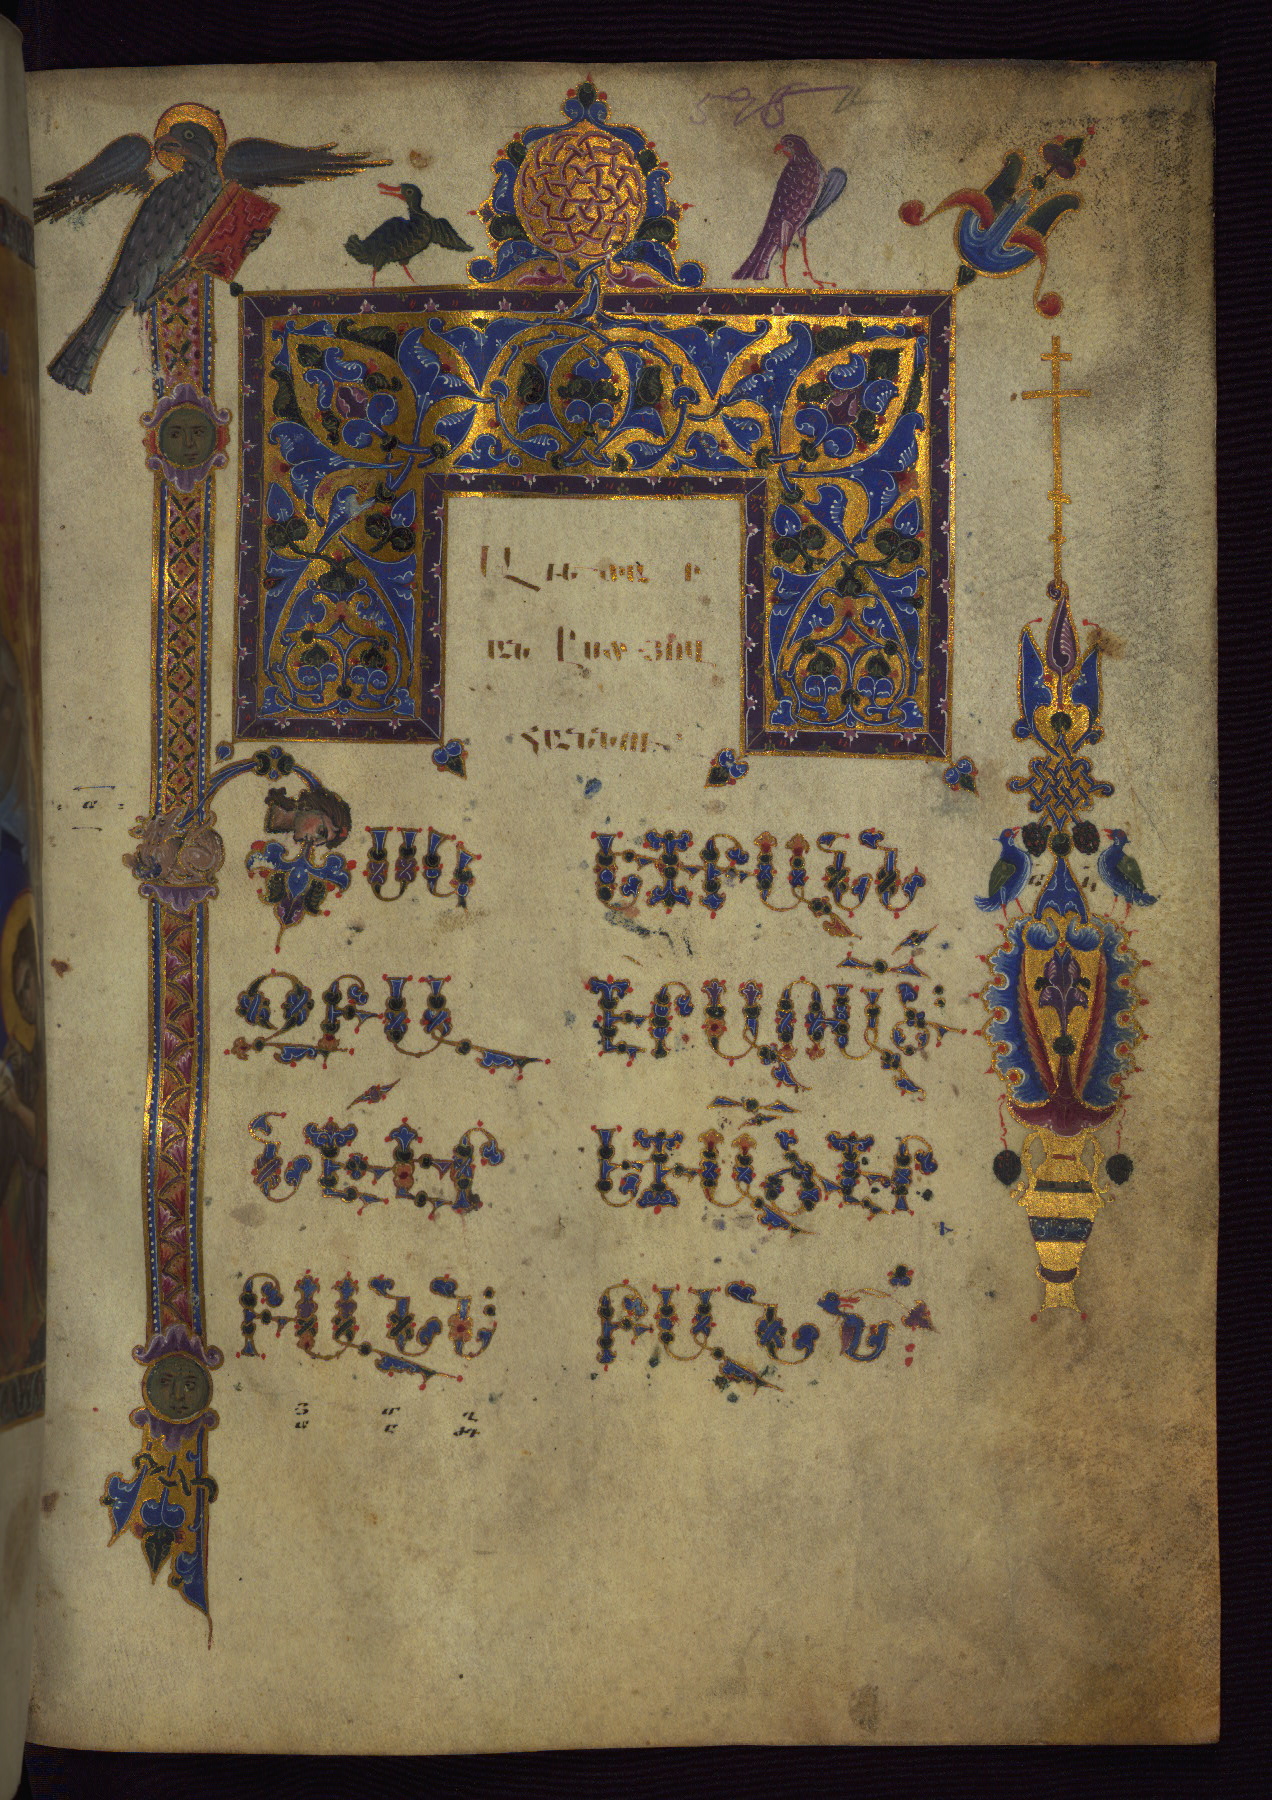 Աւետար
ան Ըստ Յով
հաննու
ա
ԻՍԿ
ԶԲԱ
ՆԷ ԷՐ
ԲԱՆՆ։
ԵՒ ԲԱՆՆ
ԷՐ ԱՌ ԱԾ։
ԵՒ ԱԾ ԷՐ
ԲԱՆՆ։